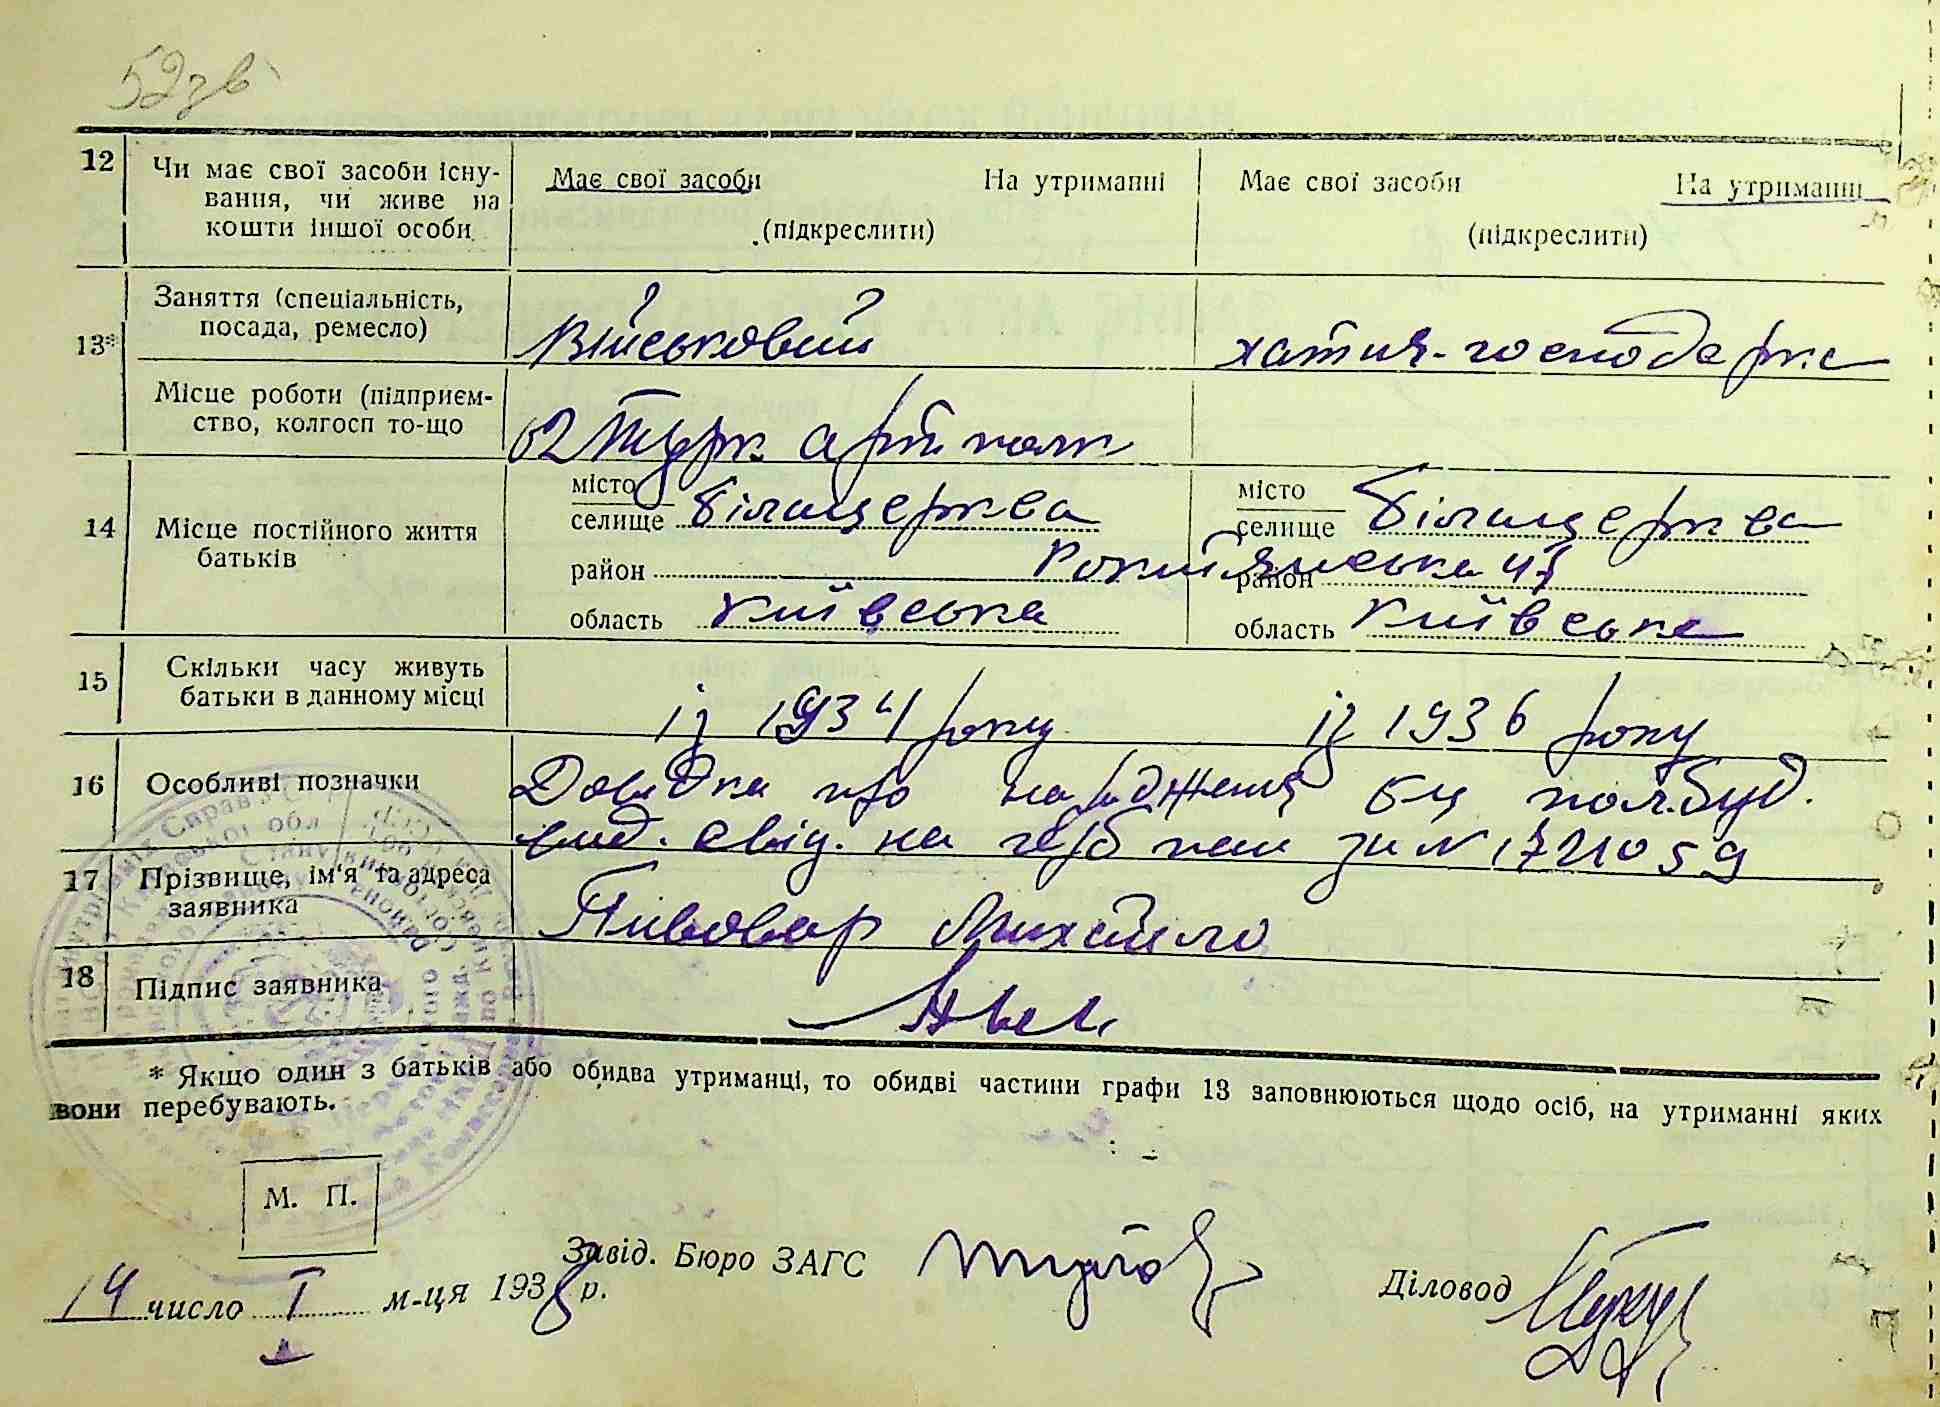 52зв
12 Чи має свої засоби існу- Має свої засоби На утриманні Має свої засоби На утриманні
вання, чи живе на
кошти іншої особи. (підкреслити) (підкреслити)
13* Заняття (спеціальність,
посада, ремесло) Військовий хатня-господарка
Місце роботи (підприєм-
ство, колгосп то-що 62 Турк. арт. полк
14 Місце постійного життя
батьків
місто
селище Білацерква
місто
селище Білацерква
район Рокитянська 45 район
область Київська область Київська
15 Скільки часу живуть
батьки в данному місці із 1934 року із 1936 року
16 Особливі позначки Довідка про народження б-ц пол.буд.
вид. свід. на герб пап за N 1721059
17 Прізвище, ім'я та адреса
заявника Пивовар Михайло
18 Підпис заявника
* Якщо один з батьків або обидва утриманці, то обидві частини графи 13 заповнюються щодо осіб, на утриманні яких
вони перебувають.
М. П.
Завід. Бюро ЗАГС
Діловод
14 число I м-ця 1938 р.